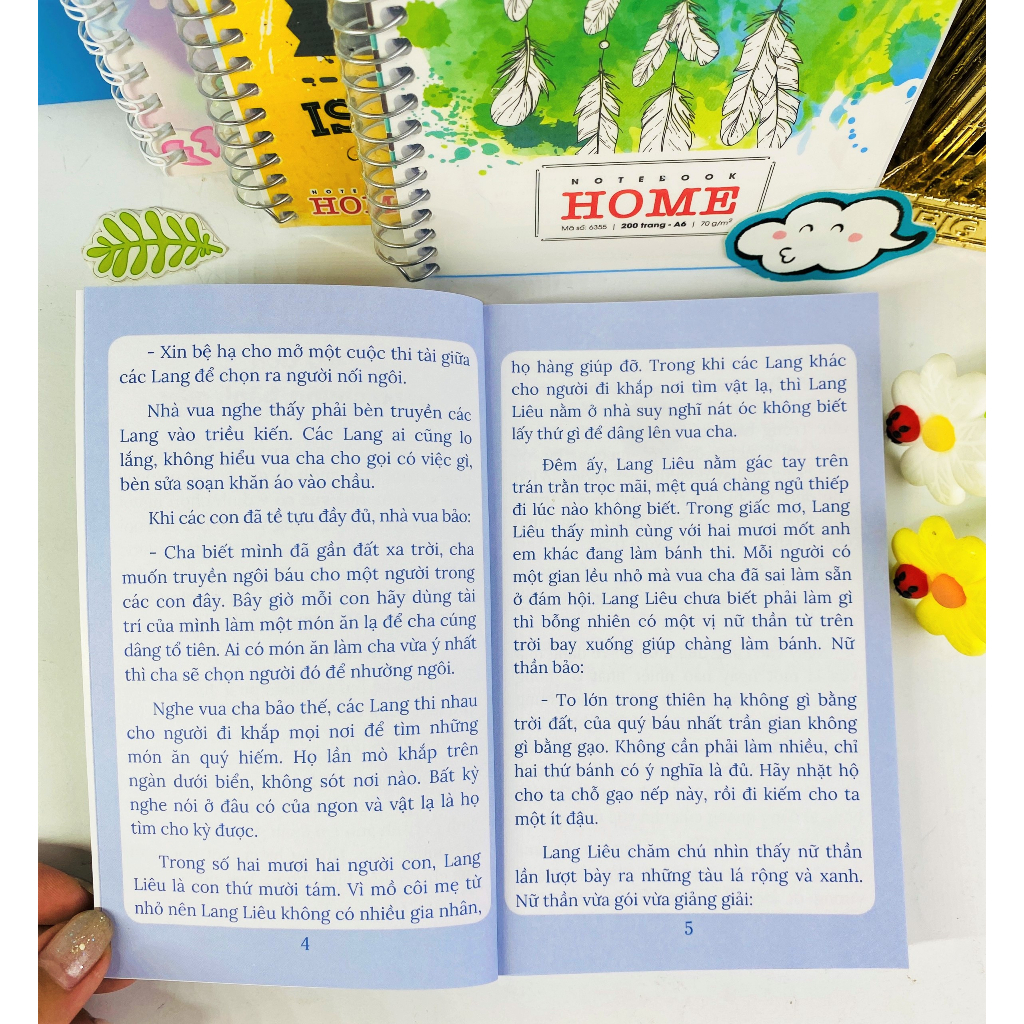 IS
NOTEBOOK
HOME
Mã số: 6355 | 200 trang - A6 | 70 g/m²
- Xin bệ hạ cho mở một cuộc thi tài giữa
các Lang để chọn ra người nối ngôi.
Nhà vua nghe thấy phải bèn truyền các
Lang vào triều kiến. Các Lang ai cũng lo
lắng, không hiểu vua cha cho gọi có việc gì,
bèn sửa soạn khăn áo vào chầu.
Khi các con đã tề tựu đầy đủ, nhà vua bảo:
- Cha biết mình đã gần đất xa trời, cha
muốn truyền ngôi báu cho một người trong
các con đây. Bây giờ mỗi con hãy dùng tài
trí của mình làm một món ăn lạ để cha cúng
dâng tổ tiên. Ai có món ăn làm cha vừa ý nhất
thì cha sẽ chọn người đó để nhường ngôi.
Nghe vua cha bảo thế, các Lang thi nhau
cho người đi khắp mọi nơi để tìm những
món ăn quý hiếm. Họ lần mò khắp trên
ngàn dưới biển, không sót nơi nào. Bất kỳ
nghe nói ở đâu có của ngon và vật lạ là họ
tìm cho kỳ được.
Trong số hai mươi hai người con, Lang
Liêu là con thứ mười tám. Vì mồ côi mẹ từ
nhỏ nên Lang Liêu không có nhiều gia nhân,
4
họ hàng giúp đỡ. Trong khi các Lang khác
cho người đi khắp nơi tìm vật lạ, thì Lang
Liêu nằm ở nhà suy nghĩ nát óc không biết
lấy thứ gì để dâng lên vua cha.
Đêm ấy, Lang Liêu nằm gác tay trên
trán trằn trọc mãi, mệt quá chàng ngủ thiếp
đi lúc nào không biết. Trong giấc mơ, Lang
Liêu thấy mình cùng với hai mươi mốt anh
em khác đang làm bánh thi. Mỗi người có
một gian lều nhỏ mà vua cha đã sai làm sẵn
ở đám hội. Lang Liêu chưa biết phải làm gì
thì bỗng nhiên có một vị nữ thần từ trên
trời bay xuống giúp chàng làm bánh. Nữ
thần bảo:
- To lớn trong thiên hạ không gì bằng
trời đất, của quý báu nhất trần gian không
gì bằng gạo. Không cần phải làm nhiều, chỉ
hai thứ bánh có ý nghĩa là đủ. Hãy nhặt hộ
cho ta chỗ gạo nếp này, rồi đi kiếm cho ta
một ít đậu.
Lang Liêu chăm chú nhìn thấy nữ thần
lần lượt bày ra những tàu lá rộng và xanh.
Nữ thần vừa gói vừa giảng giải:
5